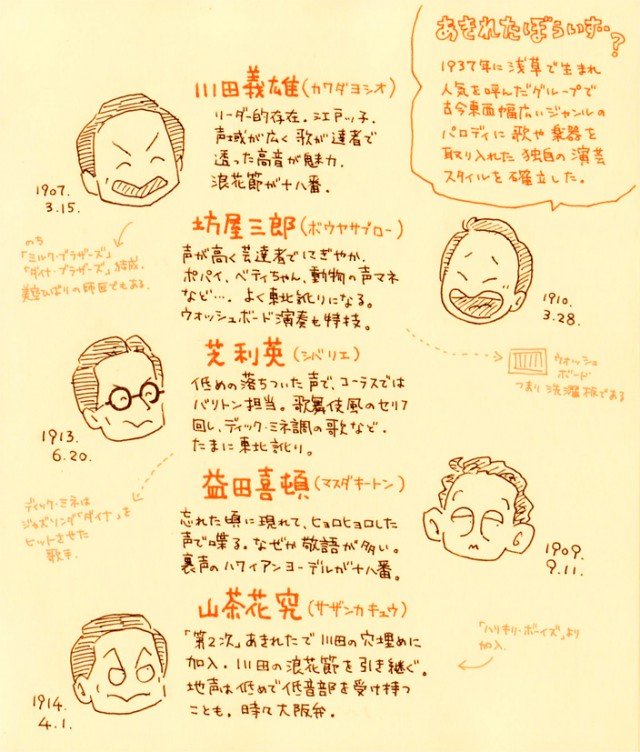 あきれたぼういず‥?
1937年に浅草で生まれ
人気を呼んだグループで
古今東西幅広いジャンルの
パロディに歌や楽器を
取り入れた独自の演芸
スタイルを確立した。
川田義雄(カワダヨシオ)
リーダー的存在。江戸ッ子。
声域が広く歌が達者で
透った高音が魅力。
浪花節が十八番。
1907.
3.15.
のち
「ミルク・ブラザーズ」
「ダイナ・ブラザーズ」結成。
美空ひばりの師匠でもある。
坊屋三郎(ボウヤサブロー)
声が高く芸達者でにぎやか。
ポパイ、ベティちゃん、動物の声マネ
など…。よく東北訛りになる。
ウォッシュボード演奏も特技。
1910.
3.28.
ウォッシュ
ボード
つまり洗濯板である
芝利英(シバリエ)
低めの落ちついた声で、コーラスでは
バリトン担当。歌舞伎風のセリフ
回し、ディック・ミネ調の歌など。
たまに東北訛り。
1913.
6.20.
ディック・ミネは
ジャズソング「ダイナ」を
ヒットさせた
歌手。
益田喜頓(マスダキートン)
忘れた頃に現れて、ヒョロヒョロした
声で喋る。なぜか敬語が多い。
裏声のハワイアンヨーデルが十八番。
1909.
9.11.
山茶花究(サザンカキュウ)
「第2次」あきれたで川田の穴埋めに
加入。川田の浪花節を引き継ぐ。
地声は低めで低音部を受け持つ
ことも。時々大阪弁。
1914.
4.1.
「ハリキリ・ボーイズ」より
加入。